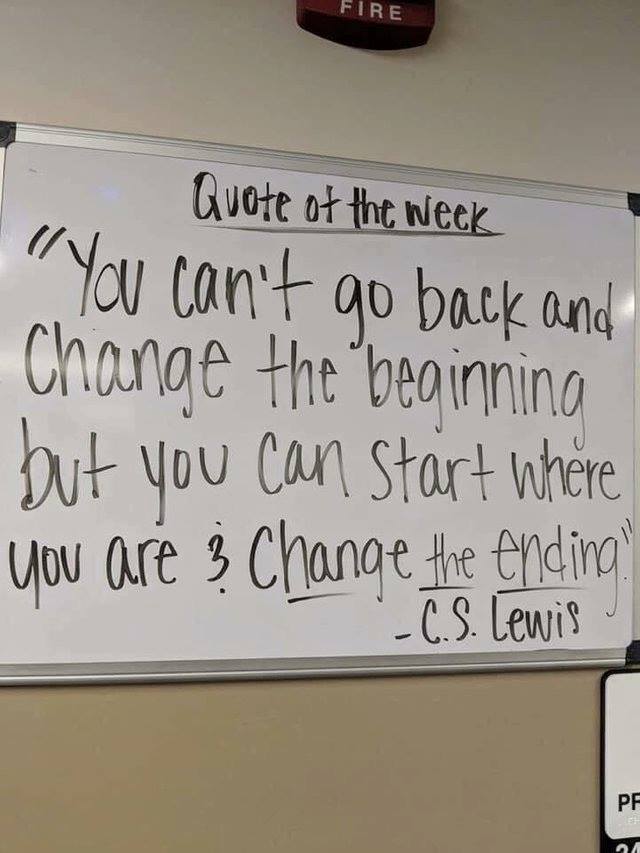 FIRE
Quote of the week
"You can't go back and
Change the beginning
but you can start where
you are & Change the ending."
- C.S. Lewis
PF